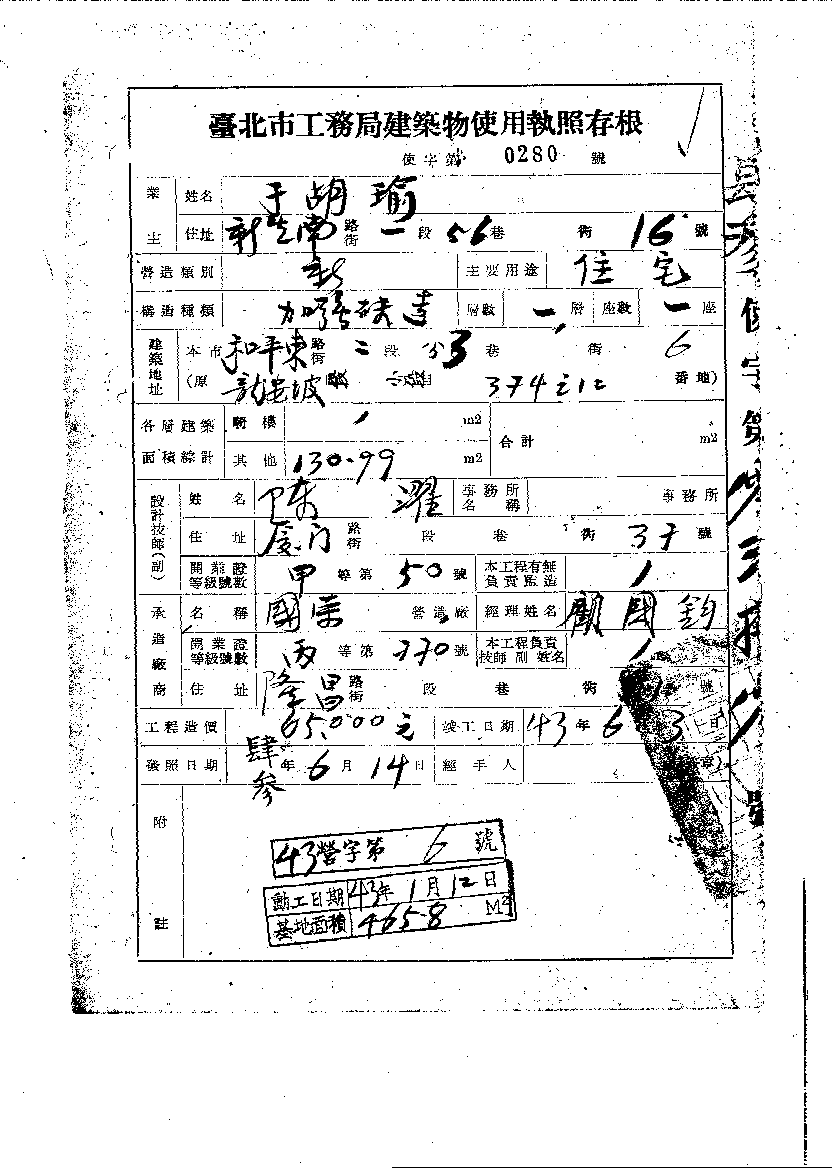 臺北市工務局建築物使用執照存根
使字第 0280 號
業主 姓名 于胡瑜
住址 新生南路街 一段 56巷 街 16號
營造類別 新 主要用途 住宅
構造種類 加強磚造 層數 一層 座數 一座
建築地址 本市和平東路街 二段 巷 街 6
(原 龍安坡段 小段 374之12 番地)
各層建築面積綜計 騎樓 m2 合計 m2
其他 130.99 m2
設計技師(副) 姓名 陳濯 事務所名稱 事務所
住址 廈门路街 段 巷 街 37號
開業證等級號數 甲等第 50號 本工程有無負責監造
承造廠商 名稱 國榮營造廠 經理姓名 顧國鈞
開業證等級號數 丙等第 770號 本工程負責技師副姓名
住址 隆昌路街 段 巷 街 號
工程造價 65,000元 竣工日期 43年6 3日
發照日期 肆參年6月14日 經手人
附註
43營字第 6號
動工日期 43年1月12日
基地面積 4658 M2